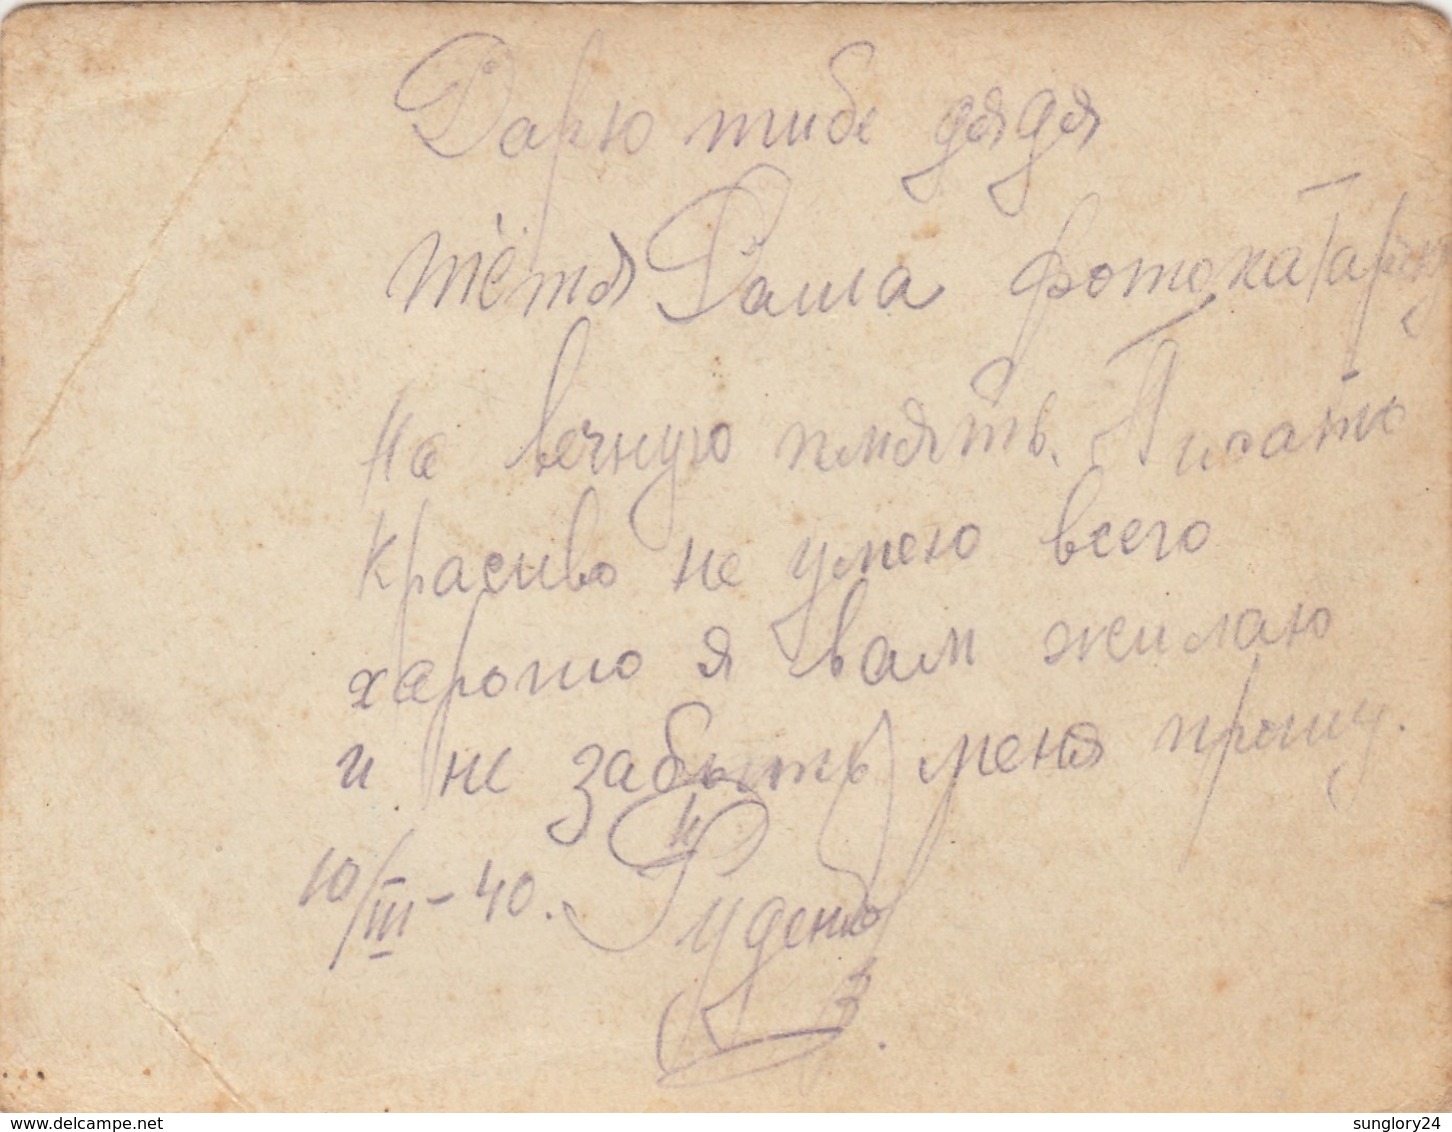 Дарю тибе дядя
тётя Даша фотокатарчку
На вечную пмять. Писать
красиво не умею всего
харошо я вам жилаю
и не забыть меня прошу.
10/III-40. Руденко
www.delcampe.net
sunglory24